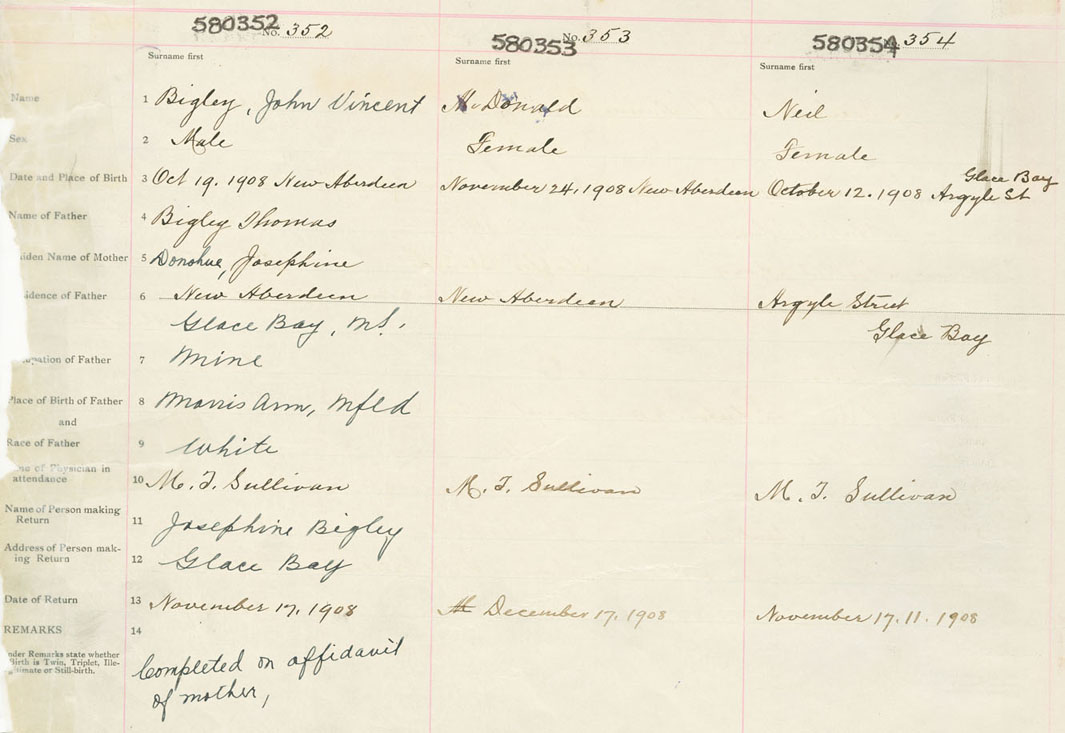 580352 No. 352
580353 No. 353
580354 354
Surname first
Surname first
Surname first
Name 1 Bigley, John Vincent
McDonald
Neil
Sex 2 Male
Female
Female
Date and Place of Birth 3 Oct 19. 1908 New Aberdeen
November 24, 1908 New Aberdeen
October 12. 1908 Argyle St
Glace Bay
Name of Father 4 Bigley Thomas
iden Name of Mother 5 Donohue, Josephine
idence of Father 6 New Aberdeen
Glace Bay, N.S.
New Aberdeen
Argyle Street
Glace Bay
pation of Father 7 Mine
Place of Birth of Father 8 Morris Arm, Nfld
and
Race of Father 9 White
me of Physician in
attendance 10 M. T. Sullivan
M. T. Sullivan
M. T. Sullivan
Name of Person making
Return 11 Josephine Bigley
Address of Person mak-
ing Return 12 Glace Bay
Date of Return 13 November 17, 1908
December 17, 1908
November 17. 11. 1908
REMARKS 14
nder Remarks state whether
Birth is Twin, Triplet, Ille-
gitimate or Still-birth.
Completed on affidavit
of mother,